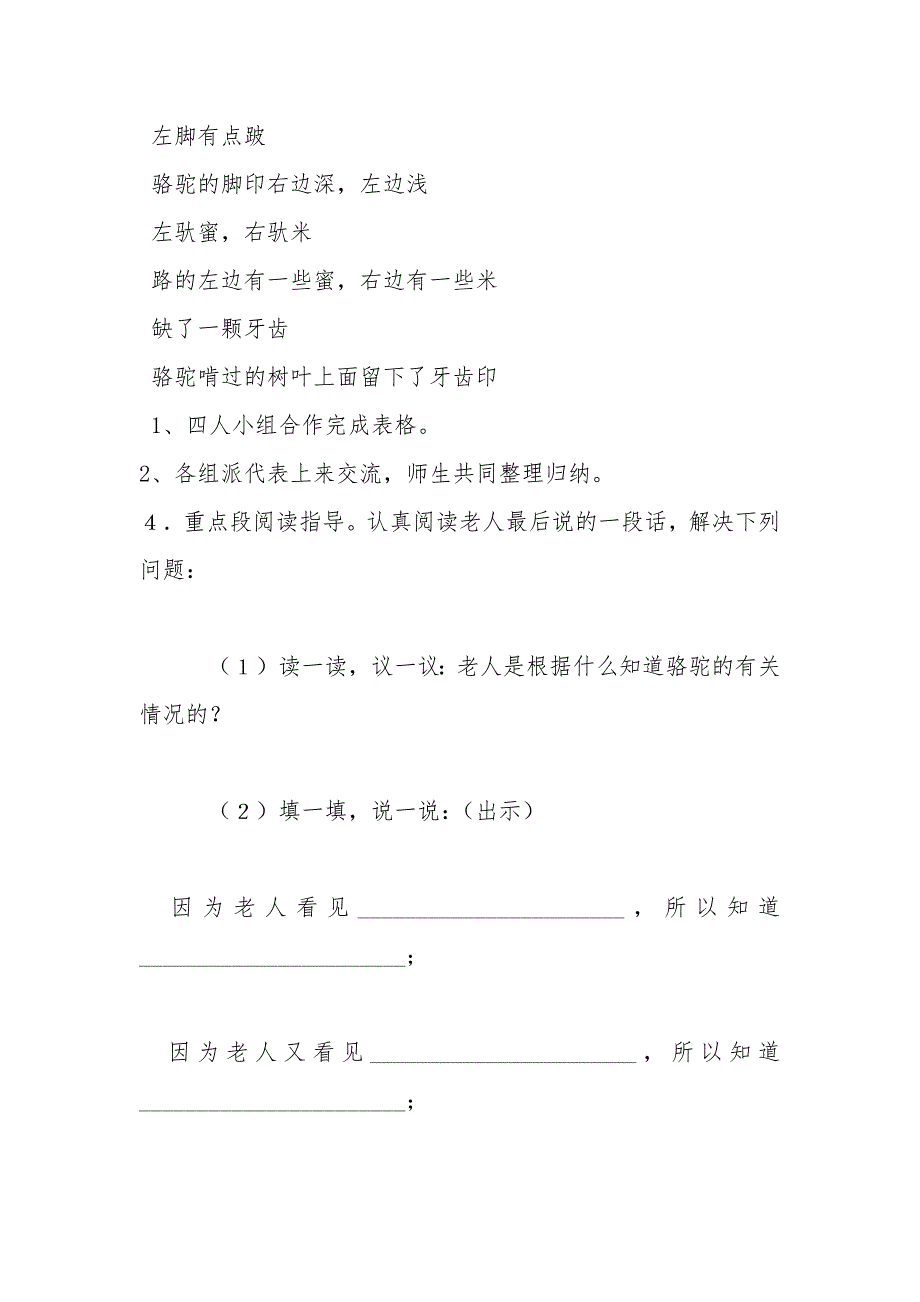 左脚有点跛
骆驼的脚印右边深，左边浅
左驮蜜，右驮米
路的左边有一些蜜，右边有一些米
缺了一颗牙齿
骆驼啃过的树叶上面留下了牙齿印
1、四人小组合作完成表格。
2、各组派代表上来交流，师生共同整理归纳。
４．重点段阅读指导。认真阅读老人最后说的一段话，解决下列
问题：
（１）读一读，议一议：老人是根据什么知道骆驼的有关
情况的？
（２）填一填，说一说：（出示）
因为老人看见______________________，所以知道
______________________；
因为老人又看见______________________，所以知道
______________________；